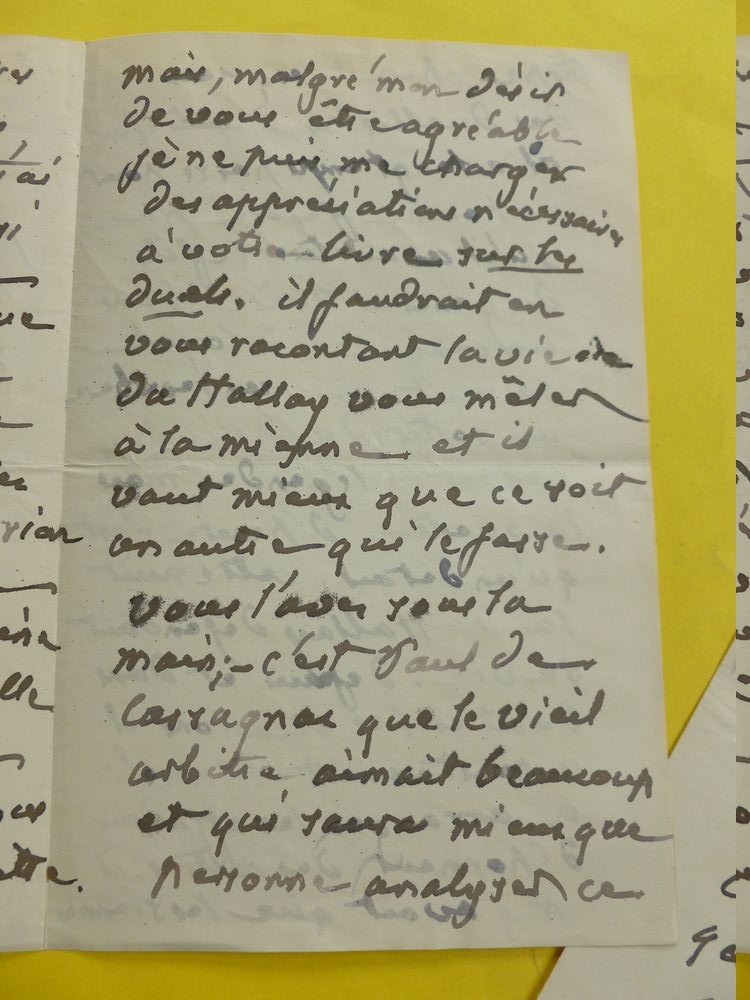 mais, malgré mon désir
de vous être agréable
je ne puis me charger
des appréciations nécessaires
à votre livre sur les
duels. il faudrait en
vous racontant la vie de
du Hallay vous mêler
à la mienne et il
vaut mieux que ce soit
un autre qui le fasse.
vous l'avez sous la
main; - c'est Paul de
Cassagnac que le vieil
arbitre aimait beaucoup
et qui saura mieux que
personne analyser ce